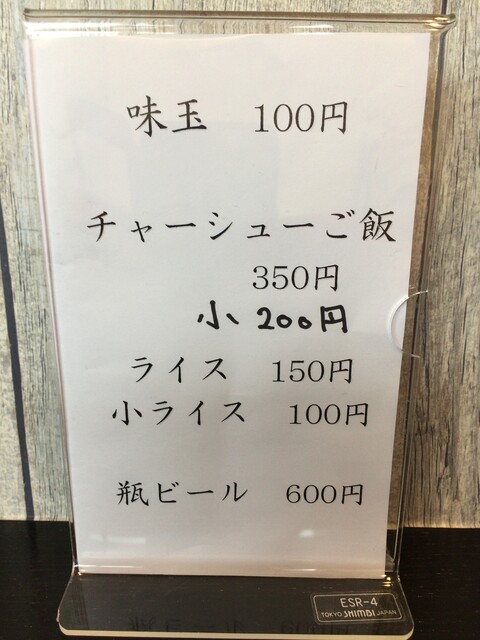 味玉 100円
チャーシューご飯
350円
小 200円
ライス 150円
小ライス 100円
瓶ビール 600円
ESR-4
TOKYO SHIMBI JAPAN